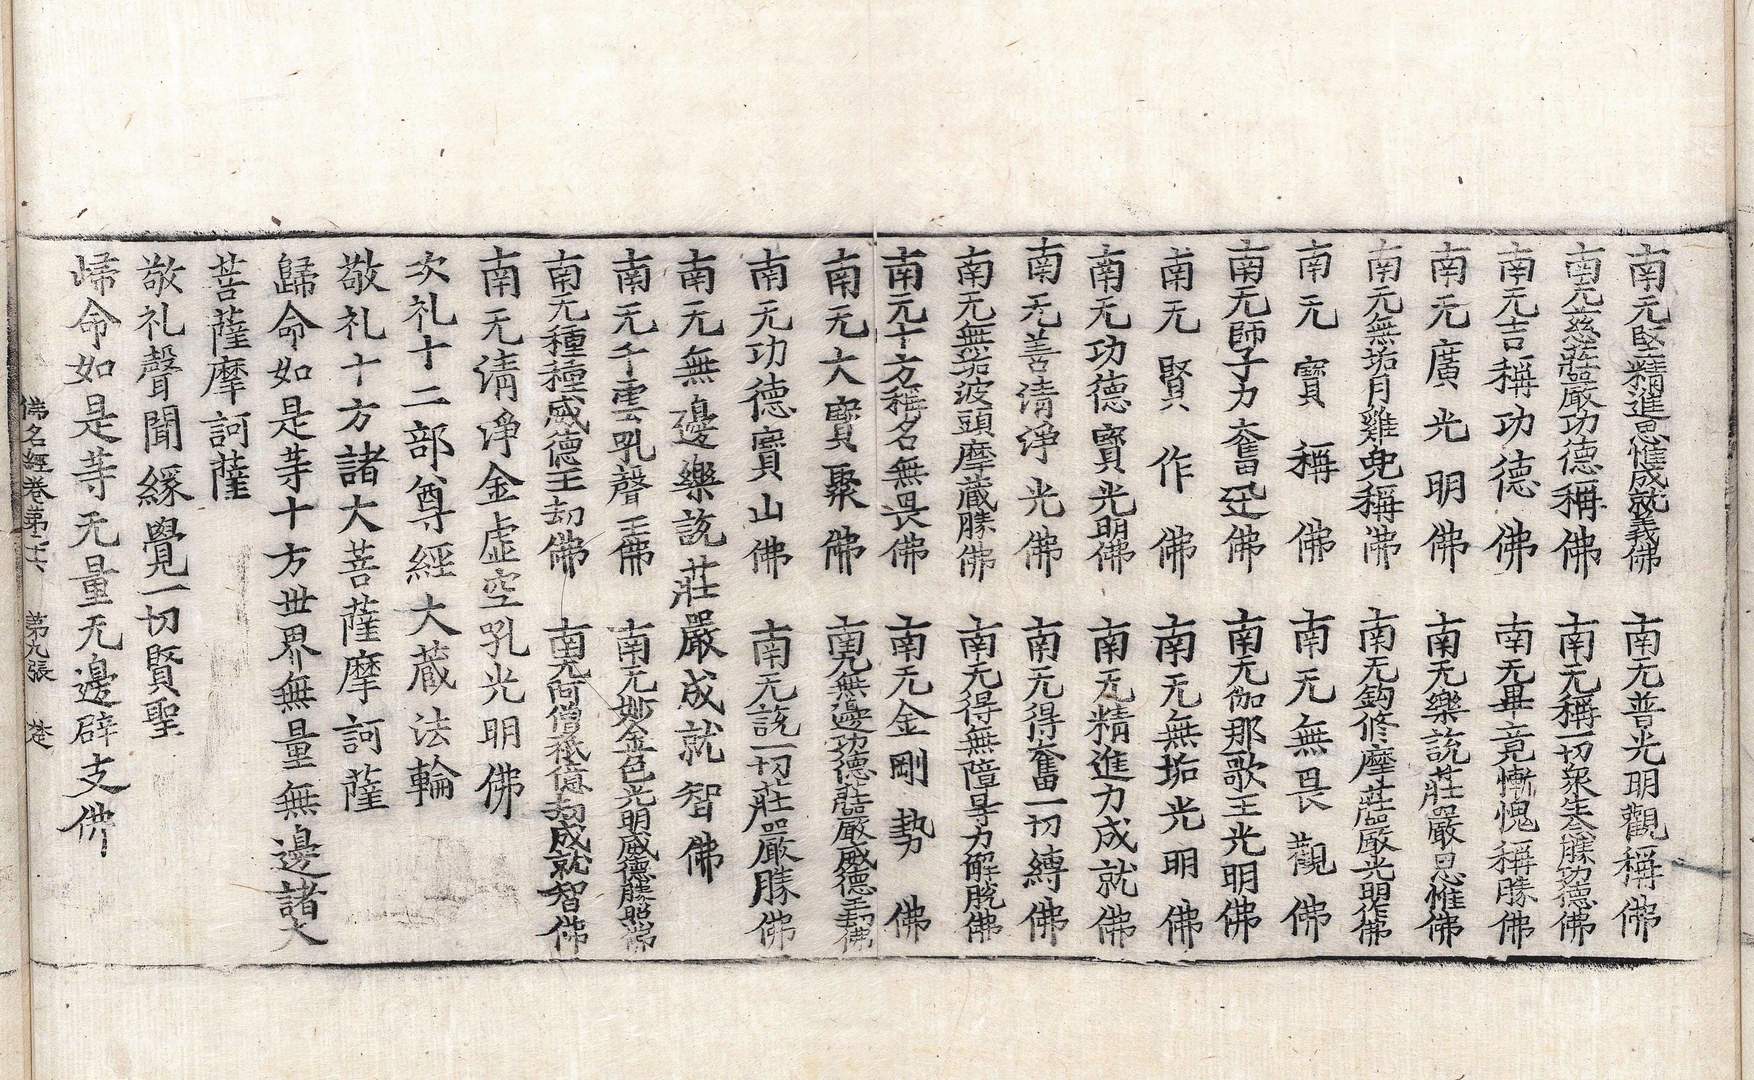 南无堅精進思惟成就義佛 南无普光明觀稱佛
南无慈莊嚴功德稱佛 南无稱一切衆生念勝功德佛
南无吉稱功德佛 南无畢竟慚愧稱勝佛
南无廣光明佛 南无樂說莊嚴思惟佛
南无無垢月雞兜稱佛 南无鉤修摩莊嚴光明作佛
南无寶稱佛 南无無畏觀佛
南无師子力奮迅佛 南无伽那歌王光明佛
南无賢作佛 南无無垢光明佛
南无功德寶光明佛 南无精進力成就佛
南无善清淨光佛 南无得奮一切縛佛
南无無垢波頭摩藏勝佛 南无得無障㝵力解脫佛
南无十方稱名無畏佛 南无金剛勢佛
南无大寶聚佛 南无無邊功德莊嚴威德王劫佛
南无功德寶山佛 南无說一切莊嚴勝佛
南无無邊樂說莊嚴成就智佛
南无千雲吼聲王佛 南无妙金色光明威德勝照佛
南无種種威德王劫佛 南无阿僧祇億劫成就智佛
南无清淨金虛空吼光明佛
次礼十二部尊經大藏法輪
敬礼十方諸大菩薩摩訶薩
歸命如是等十方世界無量無邊諸大
菩薩摩訶薩
敬礼聲聞緣覺一切賢聖
歸命如是等无量无邊辟支佛
佛名經卷第 第九張 楚